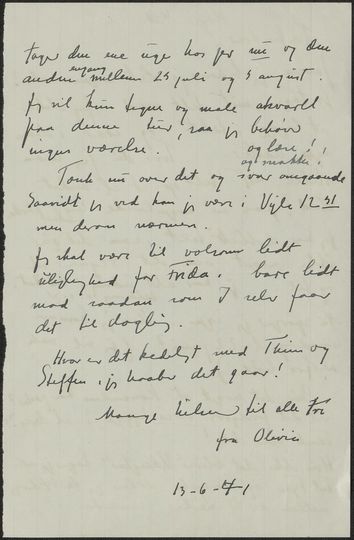 tager den ene uge hos jer nu og den
anden engang mellem 25 juli og 5 august.
Jeg vil kun tegne og male akvarel
paa denne tur, saa jeg behøver
ingen værelse. og lære!
og snakke!
Tænk nu over det og svar omgaaende
Saavidt jeg ved kan jeg være i Vejle 12
men derom nærmere.
Jeg skal være til voldsom lidt
ulejlighed for Frida. bare lidt
mad saadan som I selv faar
det til daglig.
Hvor er det kedeligt med Thim og
Steffen, jeg haaber det gaar!
Mange hilsner til alle
fra Olivia
13-6-41